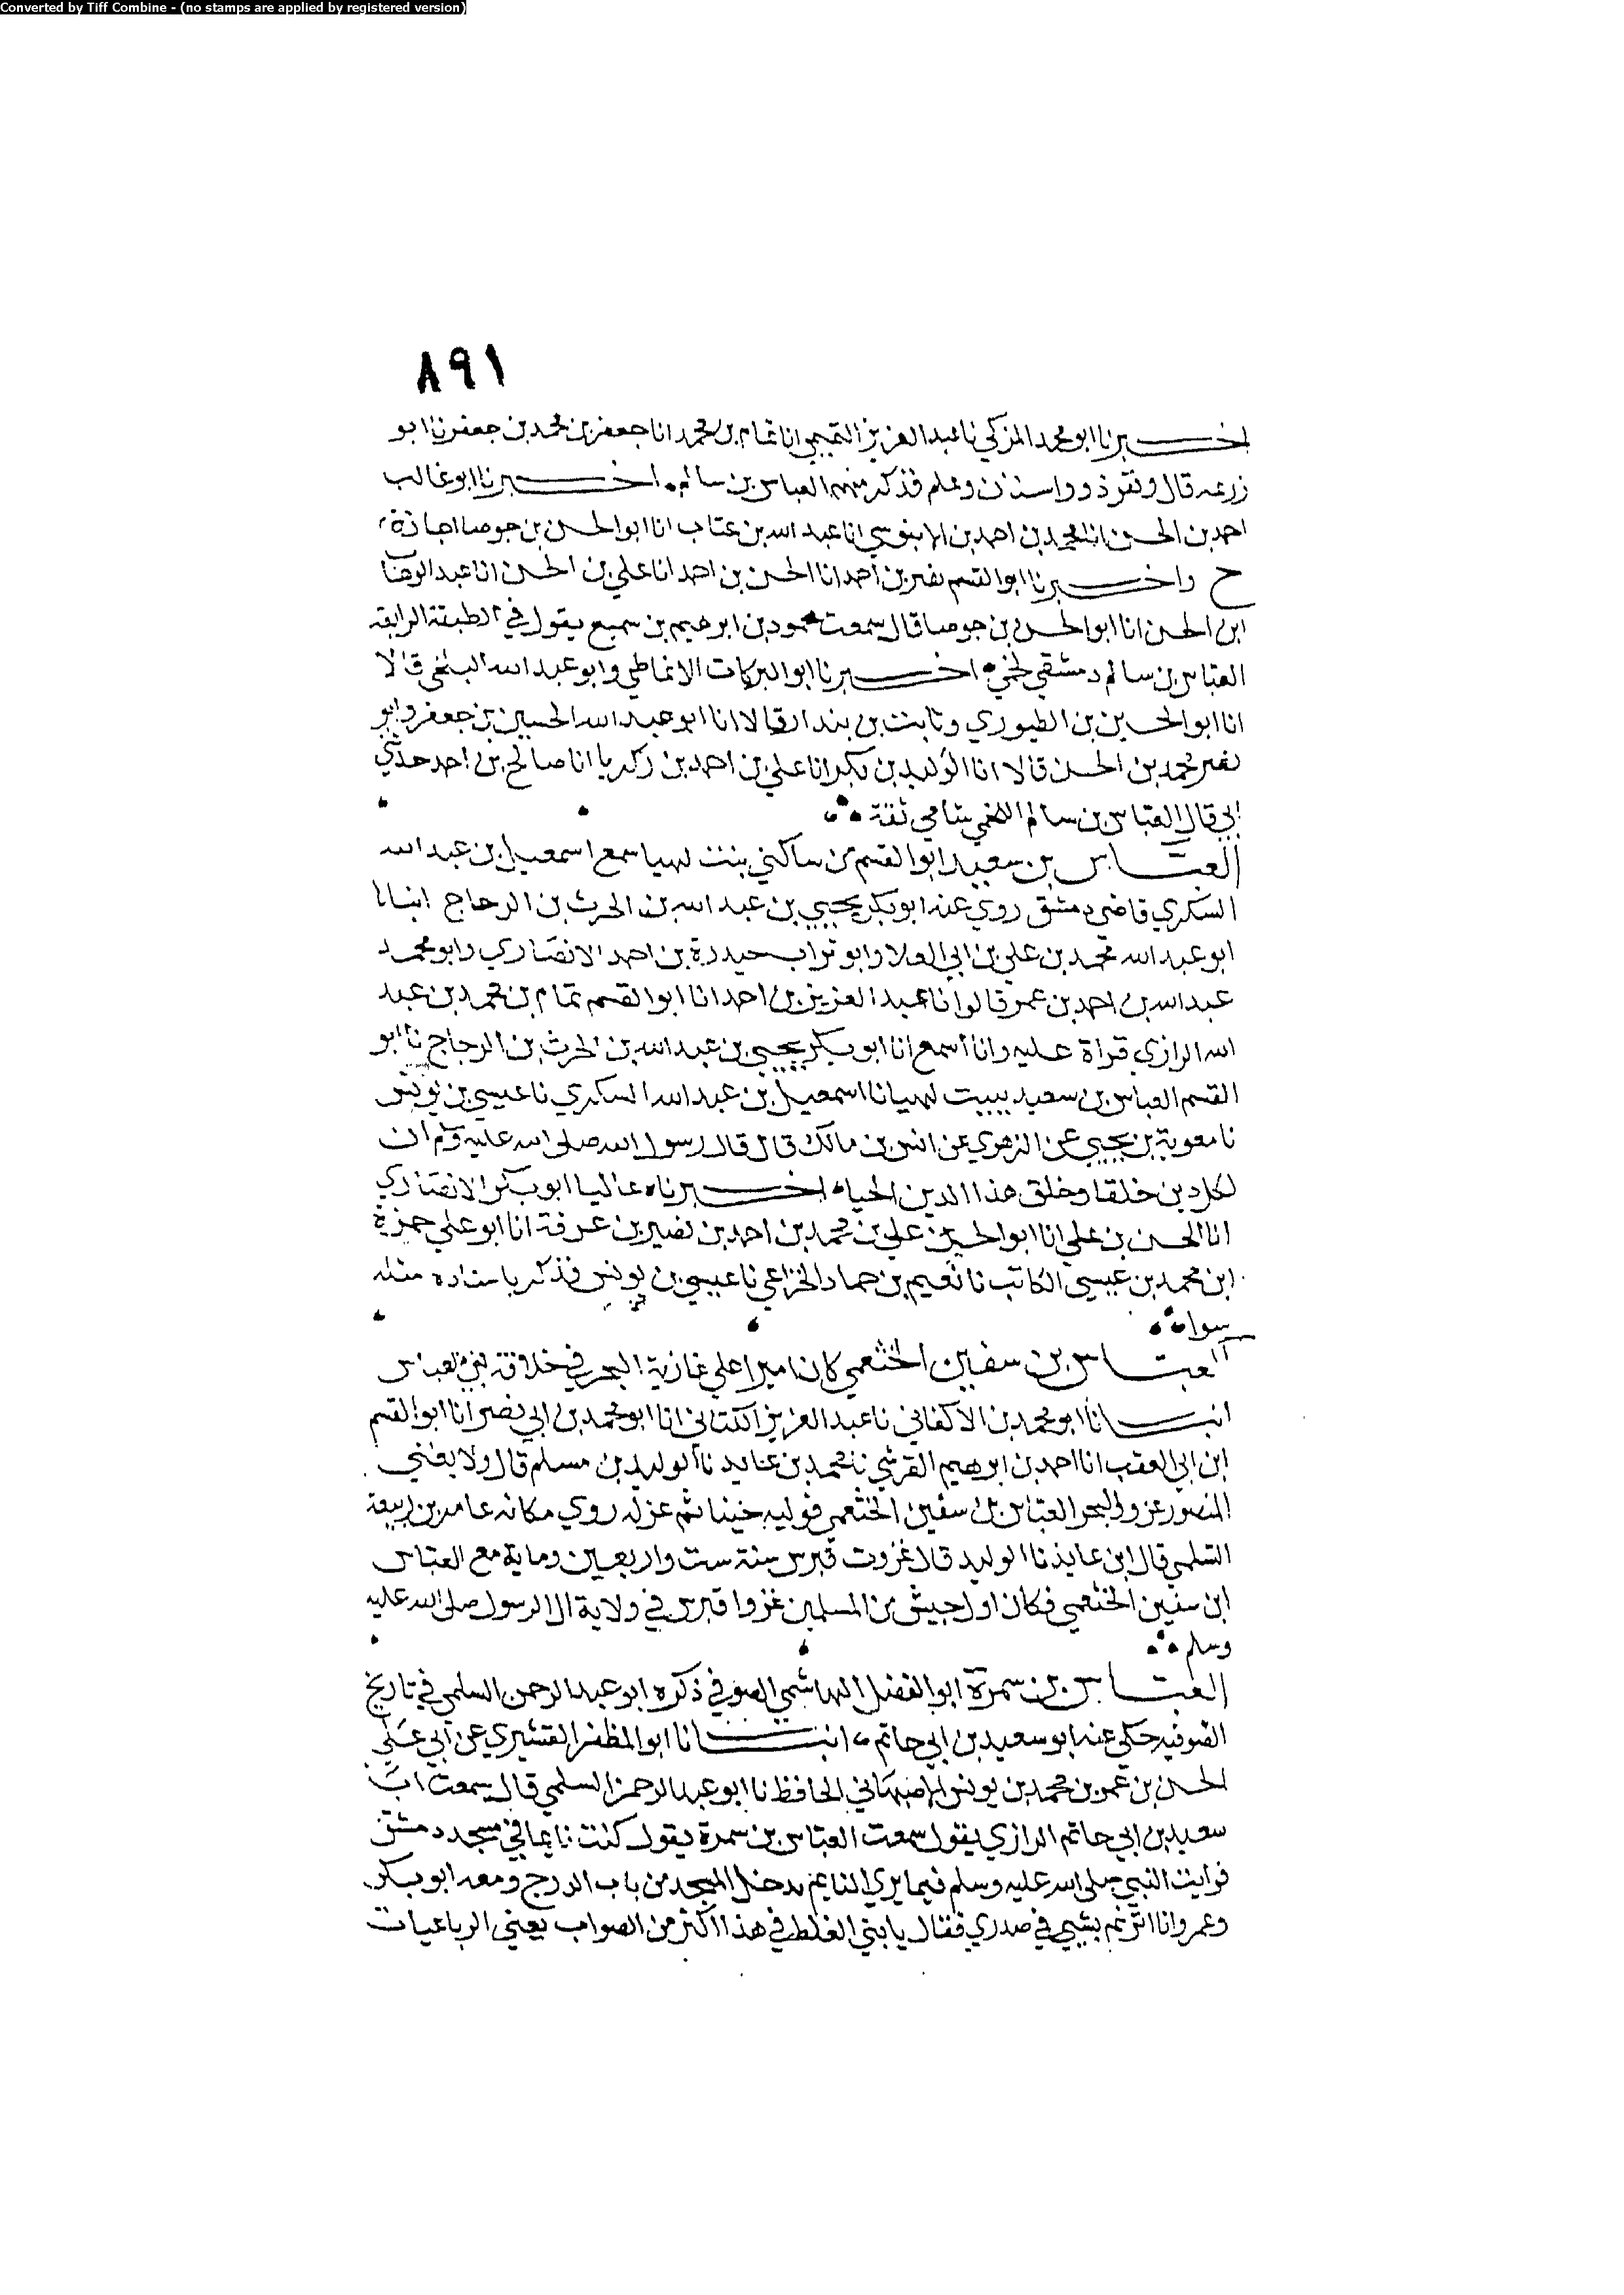 Converted by Tiff Combine - (no stamps are applied by registered version)
٨٩١
اخبرنا ابو محمد المزكي نا عبد العزيز التميمي انا تمام بن محمد انا جعفر بن محمد بن جعفر نا ابو
زرعة قال ونفر ذوو اسنان وعلم فذكر منهم العباس بن سالم اخبرنا ابو غالب
احمد بن الحسن انا محمد بن احمد بن الابنوسي انا عبد الله بن عتاب انا ابو الحسن بن جوصا اجازة
ح واخبرنا ابو القسم نصر بن احمد انا الحسن بن احمد انا علي بن الحسن انا عبد الوهاب
ابن الحسن انا ابو الحسن بن جوصا قال سمعت محمود بن ابرهيم بن سميع يقول في الطبقة الرابعة
العباس بن سالم دمشقي لخمي اخبرنا ابو البركات الانماطي وابو عبد الله البلخي قالا
انا ابو الحسين بن الطيوري وثابت بن بندار قالا انا ابو عبد الله الحسين بن جعفر وابو
نصر محمد بن الحسن قالا انا الوليد بن بكر انا علي بن احمد بن زكريا انا صالح بن احمد حدثني
ابي قال العباس بن سالم اللخمي شامي ثقة
العباس بن سعيد ابو القسم من ساكني بيت لهيا سمع اسمعيل بن عبد الله
السكري قاضي دمشق روي عنه ابو بكر يحيي بن عبد الله بن الحرث بن الزجاج انبانا
ابو عبد الله محمد بن علي بن ابي العلا وابو تراب حيدرة بن احمد الانصاري وابو محمد
عبد الله بن احمد بن عمر قالوا انا عبد العزيز بن احمد انا ابو القسم تمام بن محمد بن عبد
الله الرازي قراة عليه وانا اسمع انا ابو بكر يحيي بن عبد الله بن الحرث بن الزجاج نا ابو
القسم العباس بن سعيد ببيت لهيا نا اسمعيل بن عبد الله السكري نا عيسي بن يونس
نا معوية بن يحيي عن الزهري عن انس بن مالك قال قال رسول الله صلى الله عليه وسلم ان
لكل دين خلقا وخلق هذا الدين الحياء اخبرناه عاليا ابو بكر الانصاري
انا الحسن بن علي انا ابو الحسين علي بن محمد بن احمد بن نصير بن عرفة انا ابو علي حمزة
ابن محمد بن عيسي الكاتب نا نعيم بن حماد الخزاعي نا عيسي بن يونس فذكر باسناده مثله
سوا
العباس بن سفين الخثعمي كان اميرا علي غازية البحر في خلافة بني العباس
انبانا ابو محمد بن الاكفاني نا عبد العزيز الكتاني انا ابو محمد بن ابي نصر انا ابو القسم
ابن ابي العقب انا احمد بن ابرهيم القرشي نا محمد بن عايد نا الوليد بن مسلم قال ولا يعني
المنصور غزو البحر العباس بن سفين الخثعمي فوليه حينا ثم عزله روي مكانه عامر بن ربيعة
السلمي قال ابن عايذ نا الوليد قال غزوت قبرس سنة ست واربعين وماية مع العباس
ابن سفين الخثعمي فكان اول جيش من المسلمين غزوا قبرس في ولاية ال الرسول صلى الله عليه
وسلم
العباس بن سمرة ابو الفضل الهاشمي الصوفي ذكره ابو عبد الرحمن السلمي في تاريخ
الصوفيه حكي عنه ابو سعيد بن ابي حاتم انبانا ابو المظفر القشيري عن ابي علي
الحسن بن عمر بن محمد بن يونس الاصبهاني الحافظ نا ابو عبد الرحمن السلمي قال سمعت ابا
سعيد بن ابي حاتم الرازي يقول سمعت العباس بن سمرة يقول كنت نايما في مسجد دمشق
فرايت النبي صلى الله عليه وسلم فيما يري النايم يدخل المسجد من باب الدرج ومعه ابو بكر
وعمر وانا اترنم بشيي في صدري فقال يا بني الغلط في هذا اكثر من الصواب يعني الرباعيات